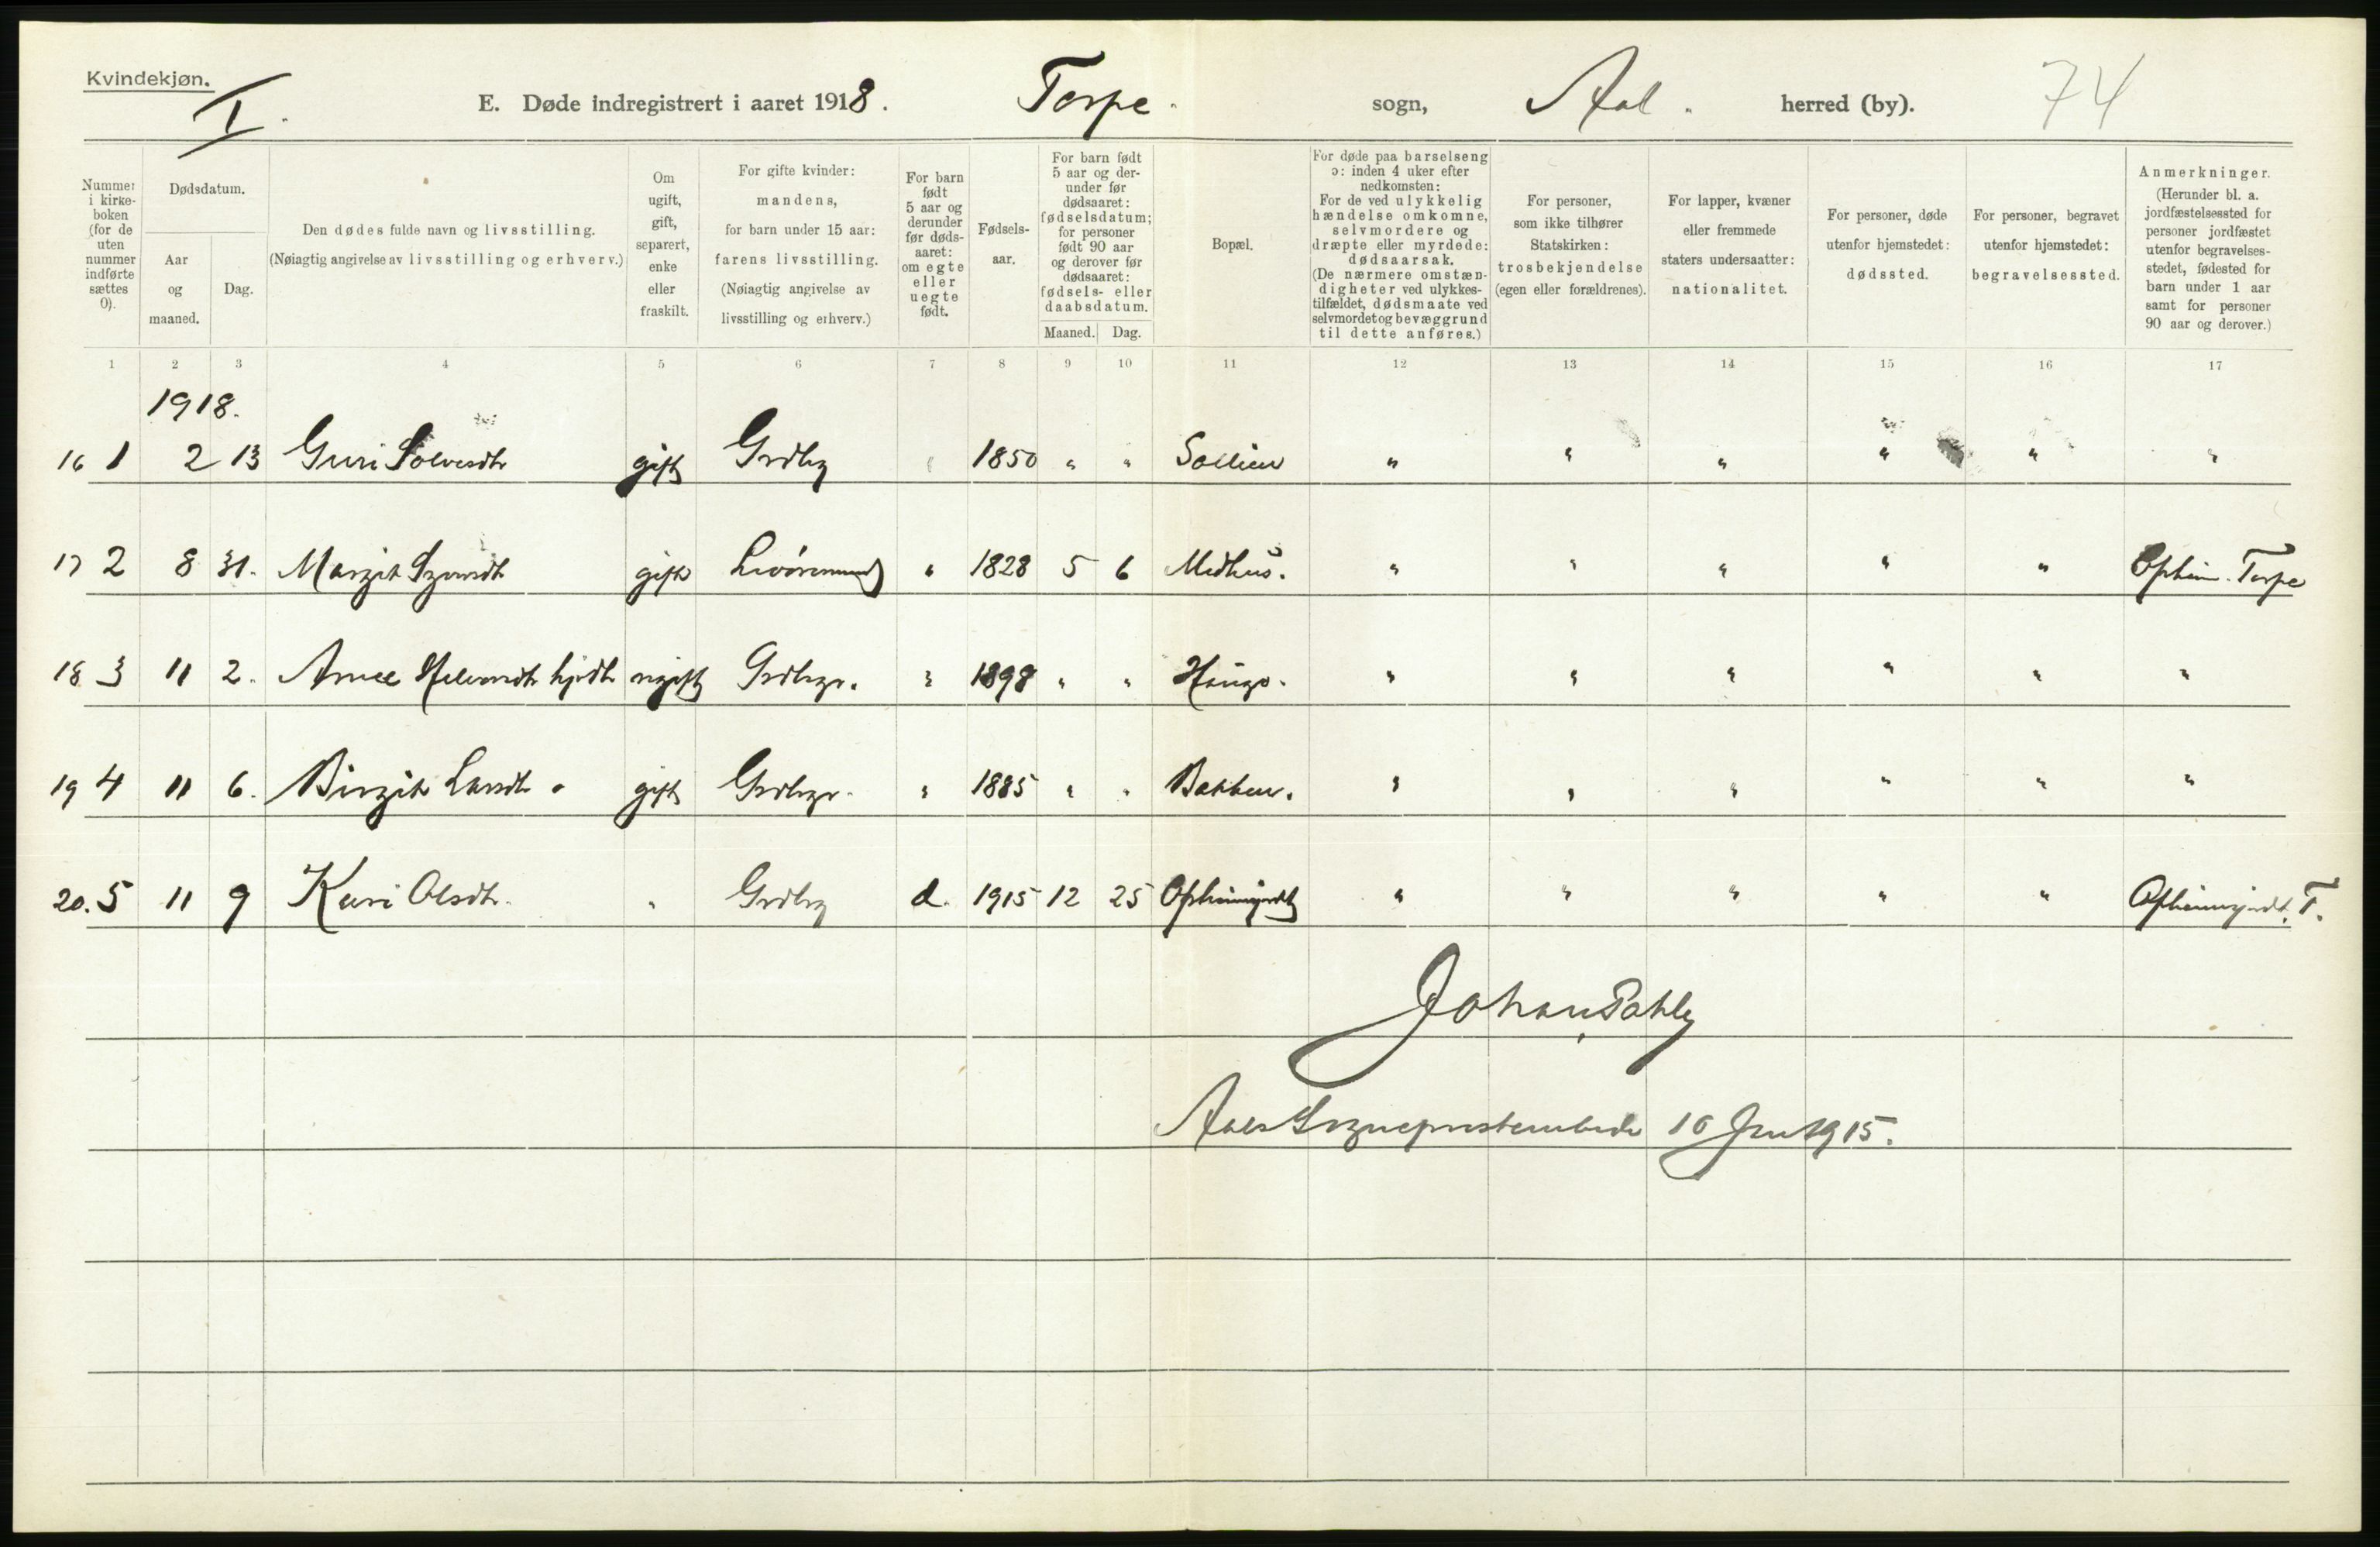 Kvindekjøn.
I.
E. Døde indregistrert i aaret 1918. Torpe. sogn, Aal. herred (by). 74
Nummer i kirkeboken (for de uten nummer indførte sættes 0).
Dødsdatum.
Aar og maaned.
Dag.
Den dødes fulde navn og livsstilling.
(Nøiagtig angivelse av livsstilling og erhverv.)
Om ugift, gift, separert, enke eller fraskilt.
For gifte kvinder: mandens, for barn under 15 aar: farens livsstilling. (Nøiagtig angivelse av livsstilling og erhverv.)
For barn født 5 aar og derunder før dødsaaret: om egte eller uegte født.
Fødselsaar.
For barn født 5 aar og derunder før dødsaaret: fødselsdatum; for personer født 90 aar og derover før dødsaaret: fødsels- eller daabsdatum.
Maaned. Dag.
Bopæl.
For døde paa barselseng ɔ: inden 4 uker efter nedkomsten: For de ved ulykkelig hændelse omkomne, selvmordere og dræpte eller myrdede: dødsaarsak. (De nærmere omstændigheter ved ulykkestilfældet, dødsmaate ved selvmordet og bevæggrund til dette anføres.)
For personer, som ikke tilhører Statskirken: trosbekjendelse (egen eller forældrenes).
For lapper, kvæner eller fremmede staters undersaatter: nationalitet.
For personer, døde utenfor hjemstedet: dødssted.
For personer, begravet utenfor hjemstedet: begravelsessted.
Anmerkninger. (Herunder bl. a. jordfæstelsessted for personer jordfæstet utenfor begravelsesstedet, fødested for barn under 1 aar samt for personer 90 aar og derover.)
1 2 3 4 5 6 7 8 9 10 11 12 13 14 15 16 17
1918.
16 1 2 13 Guri gift Grdbr " 1850 " " " " " " " "
17 2 8 31. Margit gift " 1828 5 6 Medhus. " " " " " Opheim. Torpe
18 3 11 2. ugift Grdbgr. " 1898 " " " " " " " "
19 4 11 6. Birgit Larsdtr. gift Grdbgr. " 1885 " " Bakken. " " " " " "
20. 5 11 9 Kari Olsdtr. " Grdbr d. 1915 12 25 " " " " " T.
Johan
Aals Sogneprestembede 16 Jan 1915.